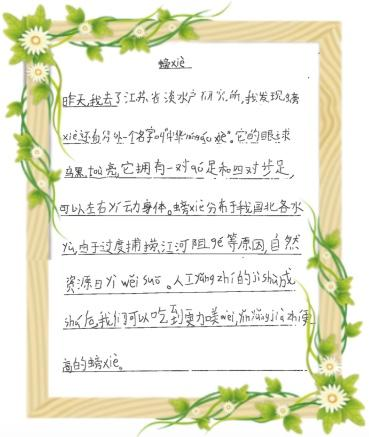 螃xiè
昨天,我去了江苏省淡水户研究所,我发现,螃
xiè还有另外一个名字叫"中华 "。它的眼球
乌黑 亮,它拥有一对áo足和四对步足,
可以左右yí动身体。螃xiè分布于我国北各水
yù,由于过度捕捞江河阻gé等原因,自然
资源日yì wěi suō。人工yǎng zhí的jì shù成
shú后,我们可以吃到更加美wèi,yíng yǎng jià 更
高的螃xiè。